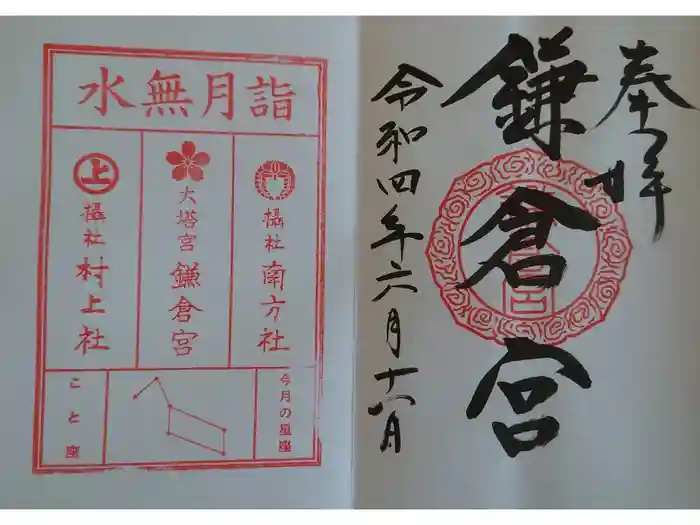 奉拝
鎌倉宮
令和四年六月十八日
水無月詣
攝社 南方社
大塔宮 鎌倉宮
上
攝社 村上社
今月の星座
こと座